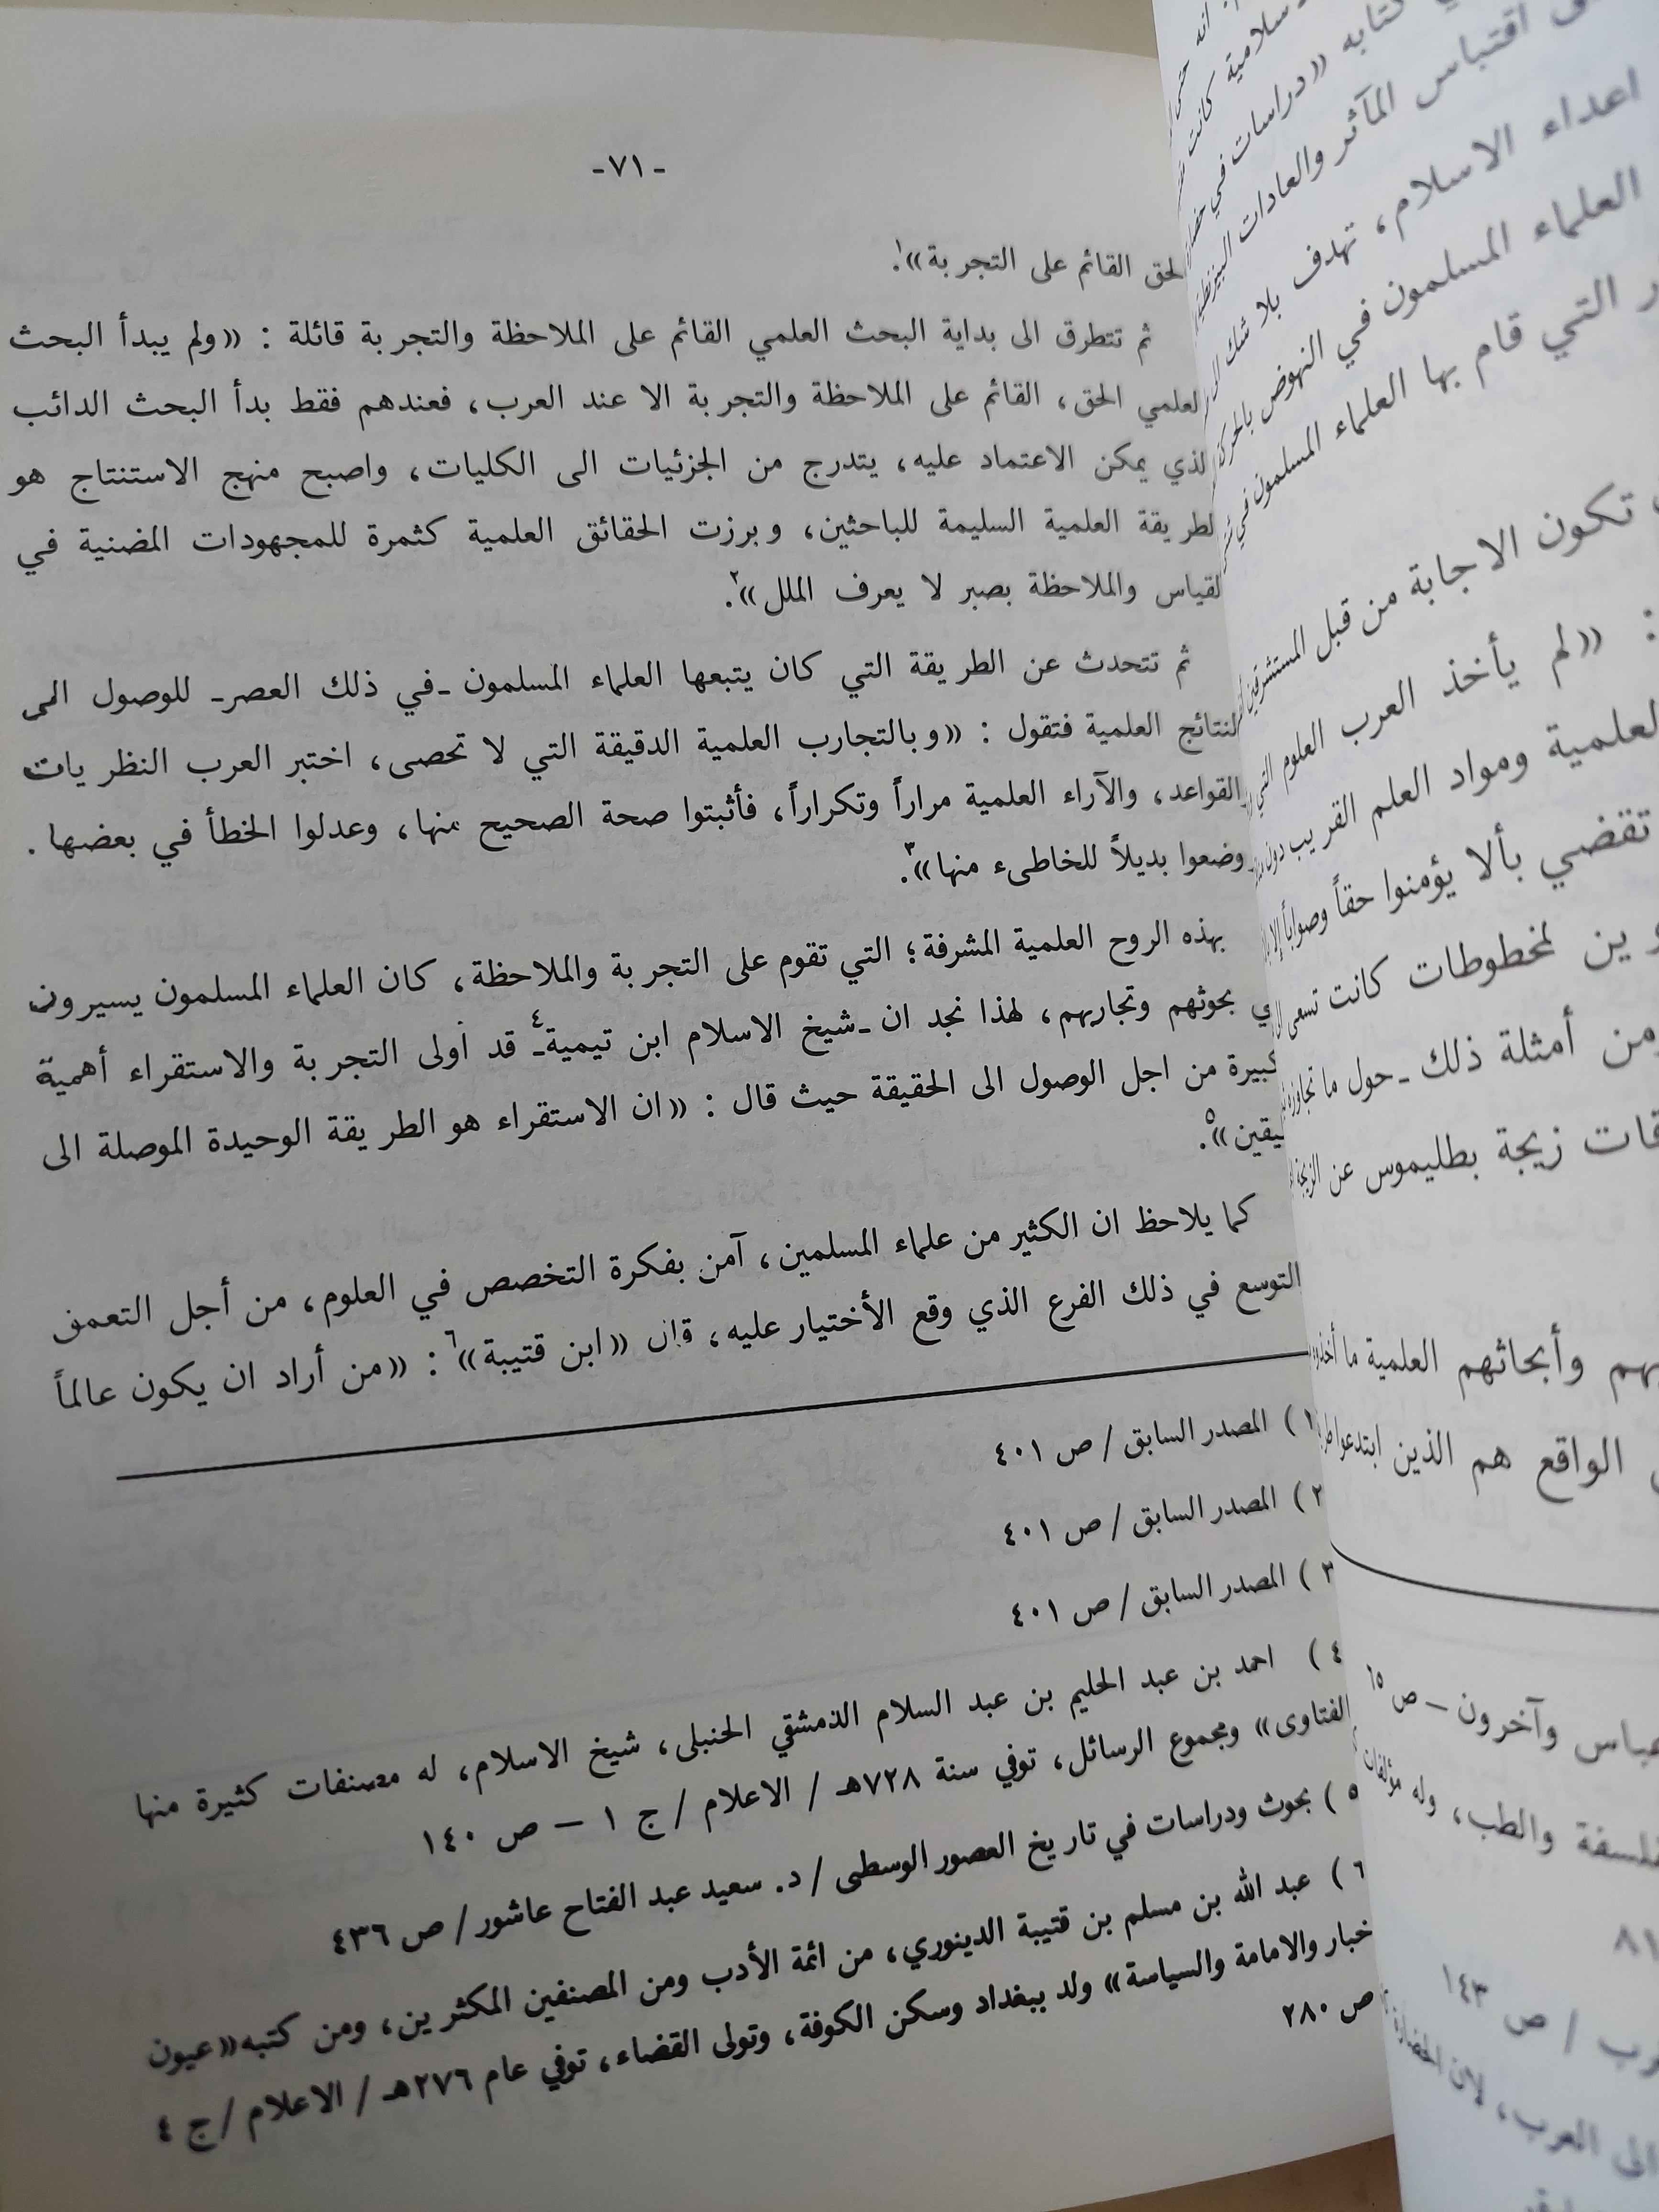 -٧١-
الحق القائم على التجربة»١.
ثم تتطرق الى بداية البحث العلمي القائم على الملاحظة والتجربة قائلة : «ولم يبدأ البحث
العلمي الحق، القائم على الملاحظة والتجربة الا عند العرب، فعندهم فقط بدأ البحث الدائب
الذي يمكن الاعتماد عليه، يتدرج من الجزئيات الى الكليات، واصبح منهج الاستنتاج هو
الطريقة العلمية السليمة للباحثين، وبرزت الحقائق العلمية كثمرة للمجهودات المضنية في
القياس والملاحظة بصبر لا يعرف الملل»٢.
ثم تتحدث عن الطريقة التي كان يتبعها العلماء المسلمون ـ في ذلك العصر ـ للوصول الى
النتائج العلمية فتقول : «وبالتجارب العلمية الدقيقة التي لا تحصى، اختبر العرب النظريات
والقواعد، والآراء العلمية مراراً وتكراراً، فأثبتوا صحة الصحيح منها، وعدلوا الخطأ في بعضها.
وضعوا بديلاً للخاطىء منها»٣.
بهذه الروح العلمية المشرفة؛ التي تقوم على التجربة والملاحظة، كان العلماء المسلمون يسيرون
في بحوثهم وتجاربهم، لهذا نجد ان ـ شيخ الاسلام ابن تيمية٤ ـ قد أولى التجربة والاستقراء أهمية
كبيرة من اجل الوصول الى الحقيقة حيث قال : «ان الاستقراء هو الطريقة الوحيدة الموصلة الى
اليقين»٥.
كما يلاحظ ان الكثير من علماء المسلمين، آمن بفكرة التخصص في العلوم، من أجل التعمق
التوسع في ذلك الفرع الذي وقع الأختيار عليه، قال «ابن قتيبة»٦ : «من أراد ان يكون عالماً
١) المصدر السابق / ص ٤٠١
٢) المصدر السابق / ص ٤٠١
٣) المصدر السابق / ص ٤٠١
٤) احمد بن عبد الحليم بن عبد السلام الدمشقي الحنبلى، شيخ الاسلام، له مصنفات كثيرة منها
الفتاوى» ومجموع الرسائل، توفي سنة ٧٢٨هـ / الاعلام / ج ١ – ص ١٤٠
٥) بحوث ودراسات في تاريخ العصور الوسطى / د. سعيد عبد الفتاح عاشور / ص ٤٣٦
٦) عبد الله بن مسلم بن قتيبة الدينوري، من ائمة الأدب ومن المصنفين المكثرين، ومن كتبه «عيون
خبار والامامة والسياسة» ولد ببغداد وسكن الكوفة، وتولى القضاء، توفي عام ٢٧٦هـ / الاعلام / ج ٤
ص ٢٨٠
كتابه «دراسات في
اقتباس المآثر والعادات
اعداء الاسلام، تهدف بلا شك
العلماء المسلمون في النهوض
التي قام بها العلماء المسلمون في
تكون الاجابة من قبل المستشرقين
: «لم يأخذ العرب العلوم التي
العلمية ومواد العلم القريب دون
تقضي بألا يؤمنوا حقاً وصواباً إلا
لمخطوطات كانت تسعى
ومن أمثلة ذلك ـ حول ما
زيجة بطليموس عن
وأبحاثهم العلمية ما
الواقع هم الذين ابتدعوا
عباس وآخرون – ص ٦٥
والطب، وله مؤلفات
٨١
/ ص ١٤٣
الى العرب، لان